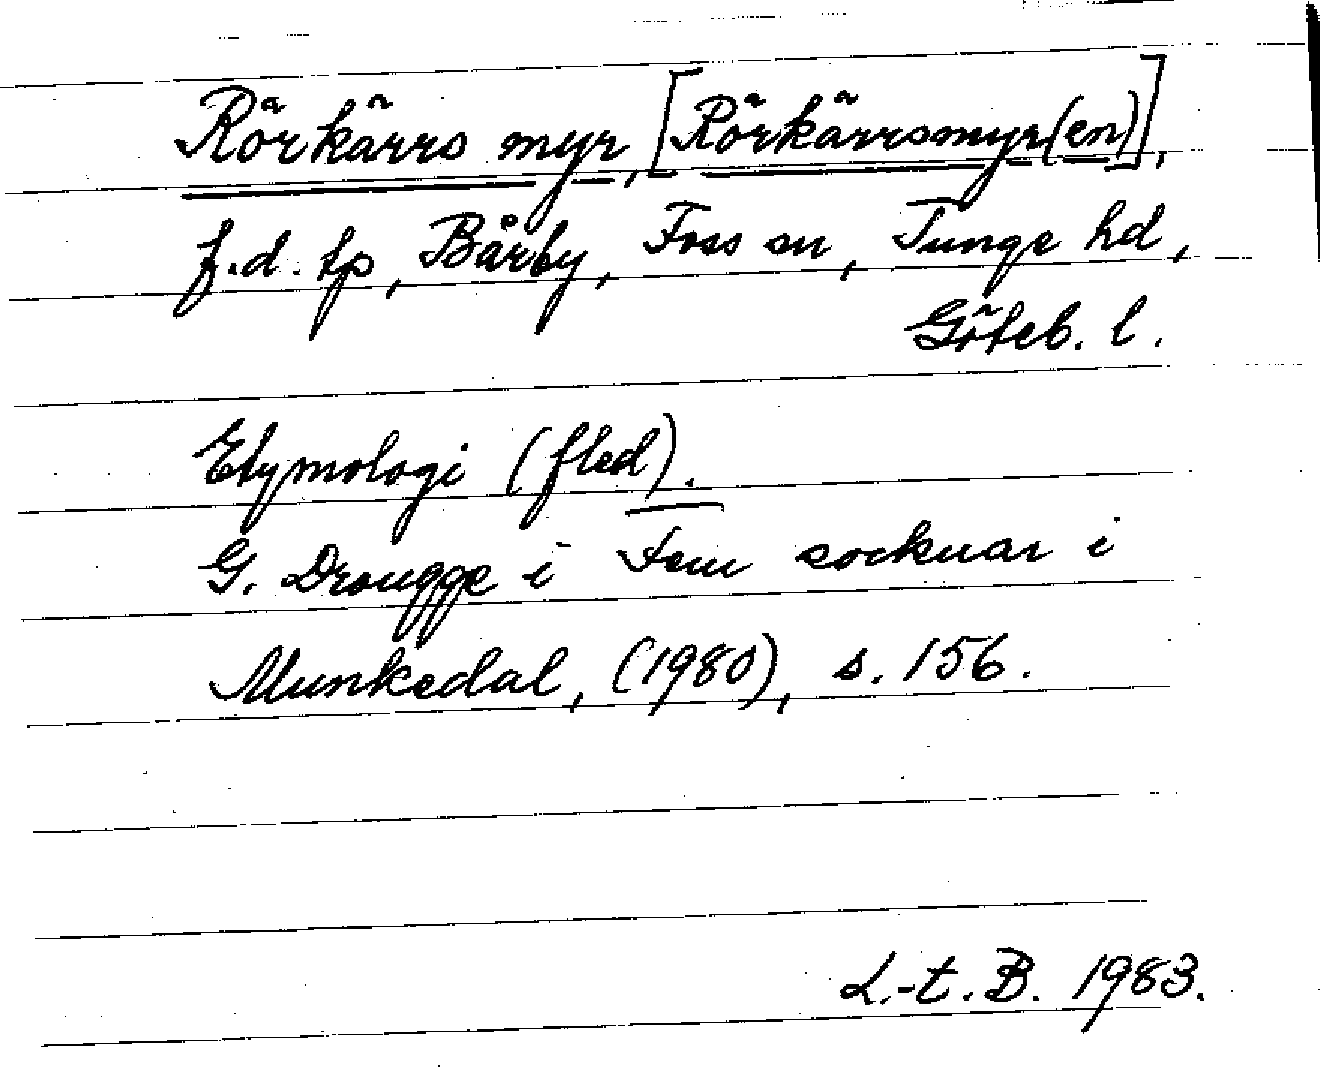 Rörkärrs myr, [Rörkärrsmyr(en)],
f.d. tp, Bärby, Foss sn, Tunge hd,
Göteb. l.
Etymologi (fled).
G. Drougge i Fem socknar i
Munkedal, (1980), s. 156.
L.-t. B. 1983.